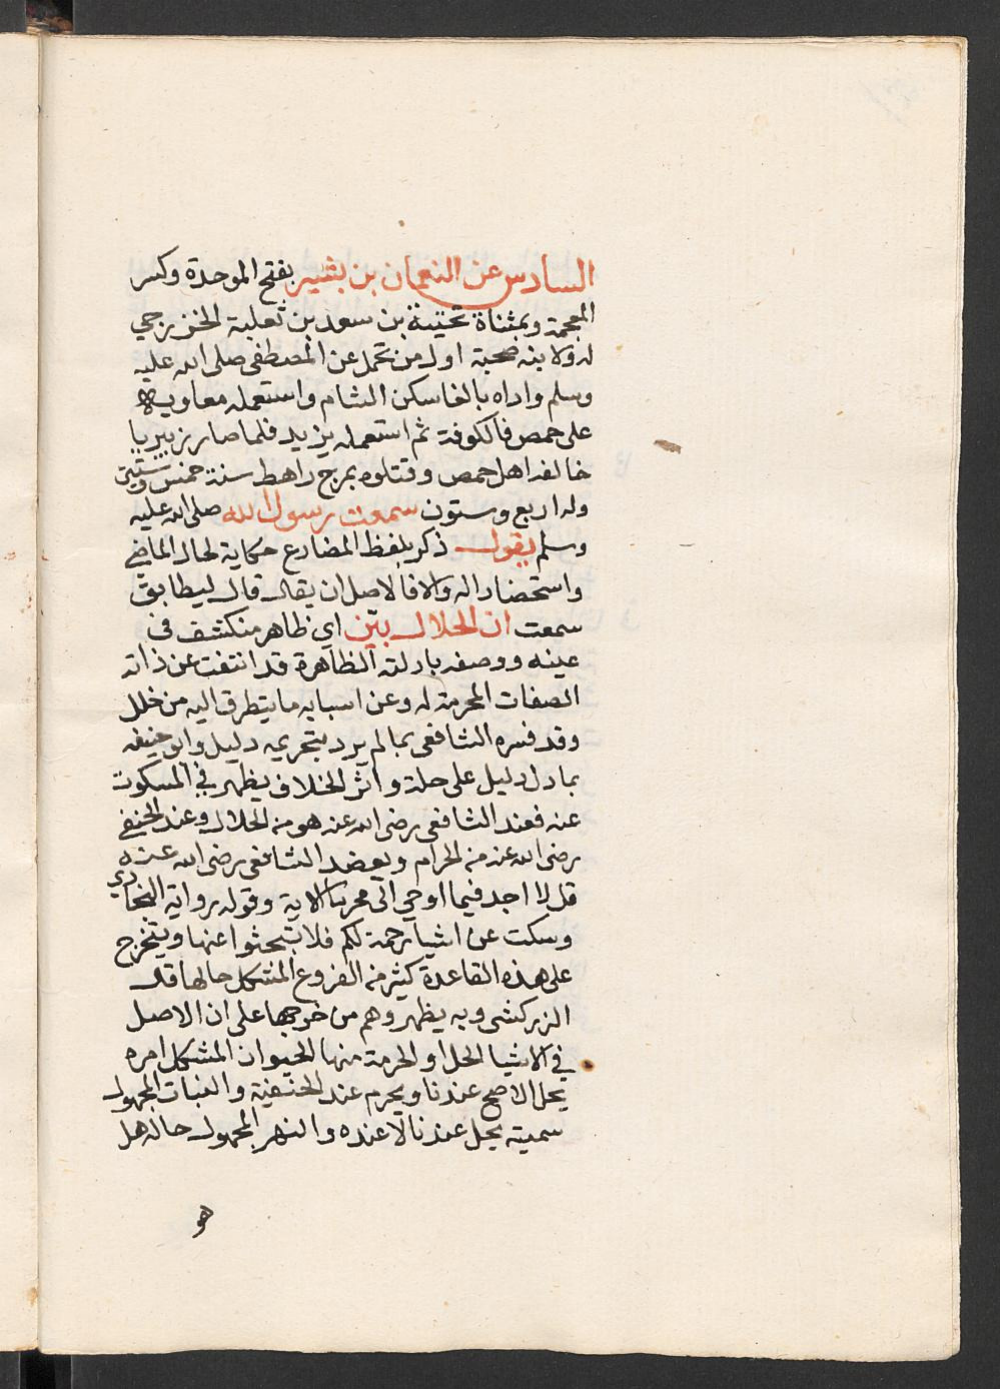 السادس عن النعمان بن بشير بفتح الموحدة وكسر
المعجمة وبمثناة تحتية بن سعد بن ثعلبة الخزرجي
له ولابنه صحبة اول من تحمل عن المصطفى صلى الله عليه
وسلم واداه بالغا سكن الشام واستعمله معاوية
على حمص فالكوفة ثم استعمله يزيد فلما صار زبيريا
خالفه اهل حمص وقتلوه بمرج راهط سنة خمس وستين
وله اربع وستون سمعت رسول الله صلى الله عليه
وسلم يقول ذكر بلفظ المضارع حكاية لحال الماضي
واستحضارا له والا فالاصل ان يقال قال ليطابق
سمعت ان الحلال بيّن اي ظاهر منكشف في
عينه ووصفه بادلته الظاهرة قد انتفت عن ذاته
الصفات المحرمة له وعن اسبابه ما يتطرق اليه من خلل
وقد فسره الشافعي بما لم يرد بتحريمه دليل وابو حنيفه
بما دل دليل على حلة واثر الخلاف يظهر في المسكوت
عنه فعند الشافعي رضى الله عنه هو من الحلال وعند الحنفي
رضى الله عنه من الحرام ويعضد الشافعي رضى الله عنه
قل لا اجد فيما اوحي الى محرما الاية وقوله برواية البخاري
وسكت عن اشيا رحمة لكم فلا تبحثوا عنها ويتخرج
على هذه القاعدة كثير من الفروع المشكل حالها قال
الزركشي وبه يظهر وهم من خرجها على ان الاصل
في الاشيا الحل او الحرمة منها الحيوان المشكل امره
يحل الاصح عندنا ويحرم عند الحنفية والنبات المجهول
سميته يحل عندنا لا عنده والنهر المجهول حاله هل
هو